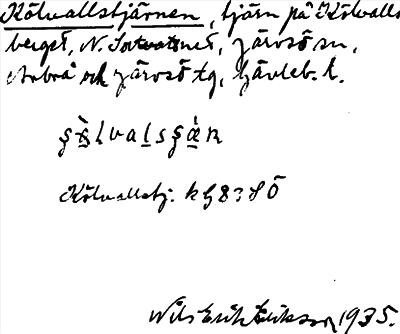 Kölvallstjärnen, tjärn på Kölvalls
berget, N. , Järvsö sn,
Arbrå och Järvsö tg, Gävleb. l.
Kölvallstj. k G 837 Ö
Nils Erik Eriksson 1935.